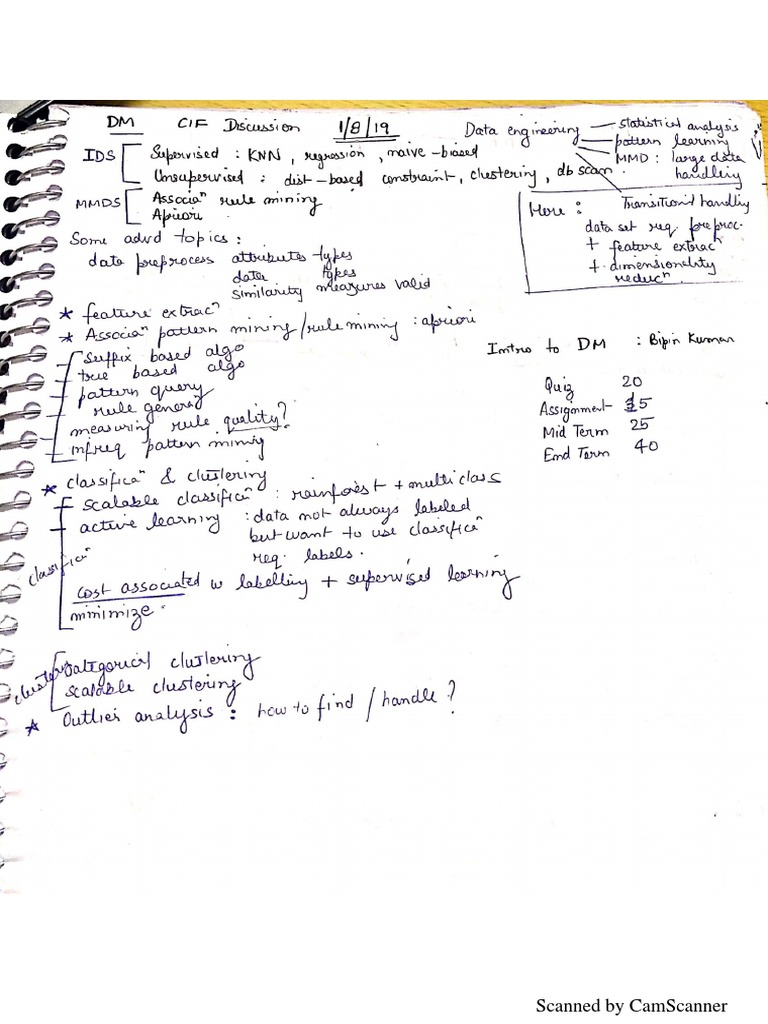 DM CIF Discussion 1/8/19
IDS Supervised : KNN, regression, naive-biased
Unsupervised : dist-based constraint, clustering, db scan.
MMDS Associaⁿ rule mining
Apriori
Data engineering
statistical analysis
pattern learning
MMD : large data
handling
Transition handling
Here :
data set req. preproc.
+ feature extracⁿ
+ dimensionality
reducⁿ
Some advd topics :
data preprocess attributes types
data types
similarity measures valid
* feature extracⁿ
* Associaⁿ pattern mining/rule mining : apriori
suffix based algo
tree based algo
pattern query
rule generiⁿ
measuring rule quality?
infreq pattern mining
Intro to DM : Bipin Kumar
Quiz 20
Assignment 15
Mid Term 25
End Term 40
* Classificaⁿ & clustering
classificaⁿ
scalable classificⁿ : rainforest + multiclass
active learning : data not always labeled
but want to use classificⁿ
req. labels.
cost associated w labelling + supervised learning
minimize.
cluster
categorical clustering
scalable clustering
* Outlier analysis : how to find / handle?
Scanned by CamScanner